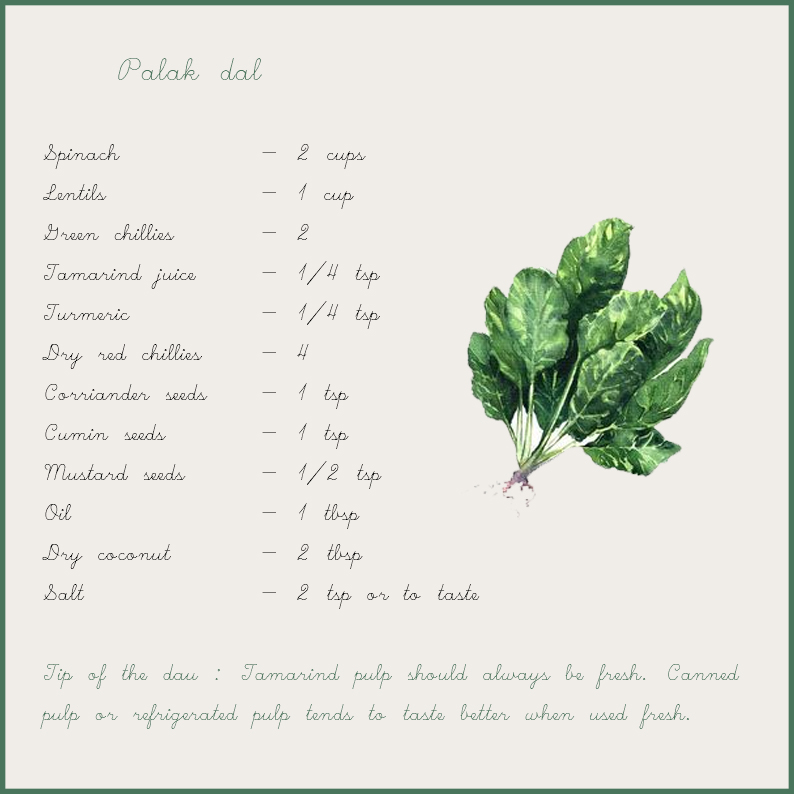 Palak dal
Spinach – 2 cups
Lentils – 1 cup
Green chillies – 2
Tamarind juice – 1/4 tsp
Turmeric – 1/4 tsp
Dry red chillies – 4
Corriander seeds – 1 tsp
Cumin seeds – 1 tsp
Mustard seeds – 1/2 tsp
Oil – 1 tbsp
Dry coconut – 2 tbsp
Salt – 2 tsp or to taste
Tip of the dau : Tamarind pulp should always be fresh. Canned
pulp or refrigerated pulp tends to taste better when used fresh.